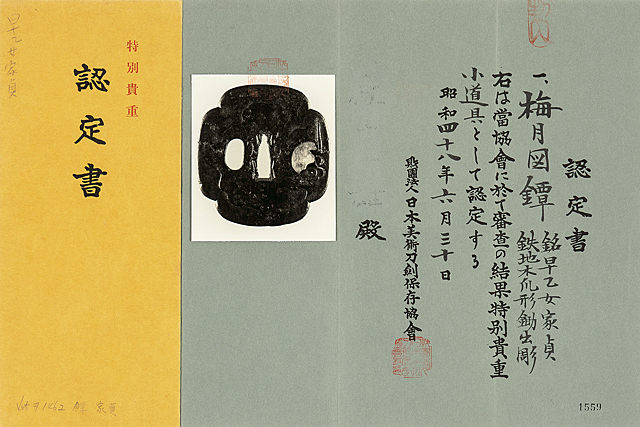 認定書
一、梅月図鐔 銘早乙女家貞
鉄地木瓜形鋤出彫
右は當協會に於て審査の結果特別貴重
小道具として認定する
昭和四十八年六月三十日
財團法人日本美術刀劍保存協會
殿
1559
特別貴重
認定書
早乙女家貞
家貞